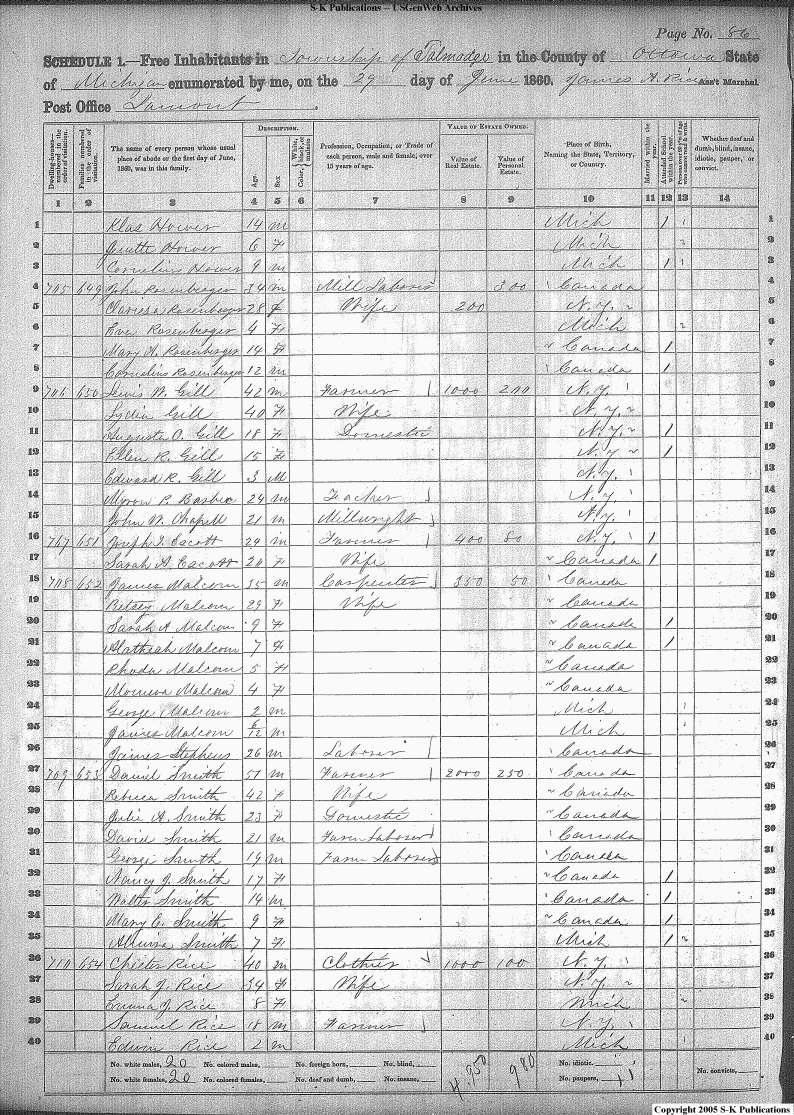 S-K Publications – USGenWeb Archives
Page No. 86
SCHEDULE 1.—Free Inhabitants in Township of Talmadge in the County of Ottawa State
of Michigan enumerated by me, on the 29 day of June 1860. James A. Rice Ass't Marshal.
Post Office Lamont.
Dwelling-houses—numbered in the order of visitation. Families numbered in the order of visitation. The name of every person whose usual place of abode on the first day of June, 1860, was in this family. DESCRIPTION. Age. Sex. Color, White, black, or mulatto. Profession, Occupation, or Trade of each person, male and female, over 15 years of age. VALUE OF ESTATE OWNED. Value of Real Estate. Value of Personal Estate. Place of Birth, Naming the State, Territory, or Country. Married within the year. Attended School within the year. Whether deaf and dumb, blind, insane, idiotic, pauper, or convict.
1 2 3 4 5 6 7 8 9 10 11 12 13 14
1 Klas Hower 14 m Mich 1 1
2 6 F Mich
3 Cornelius Hower 9 m Mich 1 1
4 705 649 John Rosenberger 34 m Mill Laborer 300 Canada 4
5 Clarissa Rosenberger 28 f Wife 200 N.Y. 5
6 Eva Rosenberger 4 F Mich 6
7 Mary A. Rosenberger 14 F Canada 1 7
8 Cornelius Rosenberger 12 m Canada 1 8
9 706 650 Lewis W. Gill 42 m Farmer 1000 200 N.Y. 9
10 Lydia Gill 40 F Wife N.Y. 10
11 Augusta O. Gill 18 F Domestic N.Y. 1 11
12 Ellen R. Gill 15 F N.Y. 1 12
13 Edward R. Gill 3 M N.Y. 13
14 Myron P. 24 m Teacher N.Y. 14
15 John W. Chapell 21 m Millwright N.Y. 15
16 707 651 Joseph I. Escott 29 m Farmer 400 80 N.Y. 1 16
17 Sarah A. Escott 20 F Wife Canada 1 17
18 708 652 James Malcom 35 m Carpenter 350 50 Canada 18
19 Betsey Malcom 29 F Wife Canada 19
20 Sarah A Malcom 9 F Canada 1 20
21 Malcom 7 F Canada 1 21
22 Rhoda Malcom 5 F Canada 22
23 Malcom 4 F Canada 23
24 George Malcom 2 m Mich 24
25 James Malcom 6/12 m Mich 25
26 James Stephens 26 m Laborer Canada 26
27 709 653 Daniel Smith 51 m Farmer 2000 250 Canada 27
28 Rebecca Smith 42 F Wife Canada 28
29 Julia A. Smith 23 F Domestic Canada 29
30 David Smith 21 m Farm Laborer Canada 30
31 George Smith 19 m Farm Laborer Canada 31
32 Nancy J. Smith 17 F Canada 1 32
33 Walter Smith 14 m Canada 1 33
34 Mary E. Smith 9 F Canada 1 34
35 Smith 7 F Mich 1 35
36 710 654 Chester Rice 40 m Clothier 1000 100 N.Y. 36
37 Sarah J. Rice 34 F Wife N.Y. 37
38 Emma J. Rice 8 F Mich 38
39 Samuel Rice 18 m Farmer N.Y. 39
40 Edwin Rice 2 m Mich 40
No. white males, 20 No. colored males, No. foreign born, No. blind, 4,950 980 No. idiotic,
No. white females, 20 No. colored females, No. deaf and dumb, No. insane, No. paupers, No. convicts,
Copyright 2005 S-K Publications